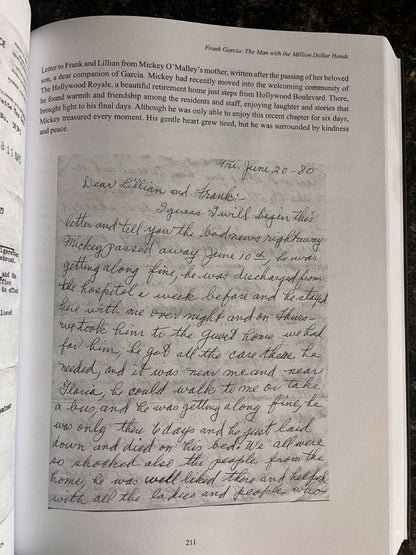 Frank Garcia: The Man with the Million Dollar Hands
Letter to Frank and Lillian from Mickey O'Malley's mother, written after the passing of her beloved
son, a dear companion of Garcia. Mickey had recently moved into the welcoming community of
The Hollywood Royale, a beautiful retirement home just steps from Hollywood Boulevard. There,
he found warmth and friendship among the residents and staff, enjoying laughter and stories that
brought light to his final days. Although he was only able to enjoy this recent chapter for six days,
Mickey treasured every moment. His gentle heart grew tired, but he was surrounded by kindness
and peace.
Fri, June 20-80
Dear Lillian and Frank:-
I guess I will begin this
letter and tell you the bad news right away
Mickey passed away June 10th, he was
getting along fine, he was discharged from
the hospital a week before and he stayed
here with me over night and on Thurs-
we took him to the guest home we had
for him, he got all the care there, he
needed, and it was near me and near
Gloria, he could walk to me or take
a bus, and he was getting along fine, he
was only there 6 days and he just laid
down and died on his bed. We all were
so shocked also the people from the
home, he was well liked there and helped
with all the ladies and people who
211